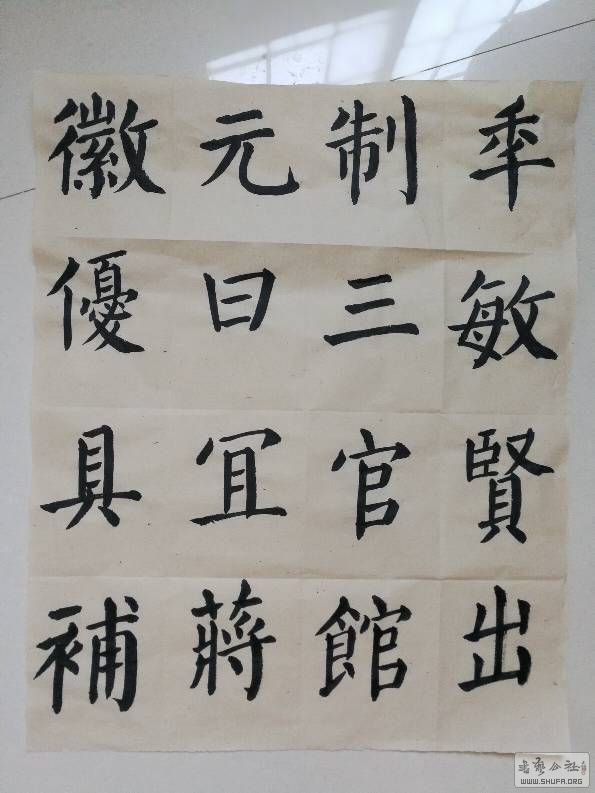 年敏賢出
制三官館
元曰冝蔣
徽優具補
书艺公社
WWW.SHUFA.ORG